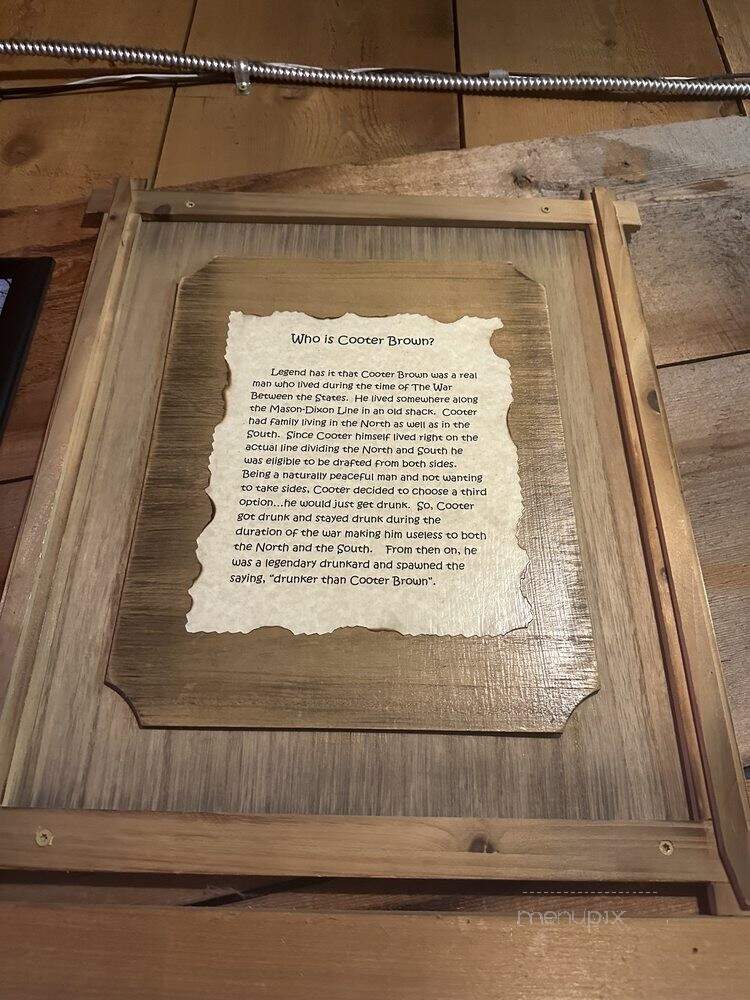 Who is Cooter Brown?
Legend has it that Cooter Brown was a real
man who lived during the time of The War
Between the States. He lived somewhere along
the Mason-Dixon Line in an old shack. Cooter
had family living in the North as well as in the
South. Since Cooter himself lived right on the
actual line dividing the North and South he
was eligible to be drafted from both sides.
Being a naturally peaceful man and not wanting
to take sides, Cooter decided to choose a third
option...he would just get drunk. So, Cooter
got drunk and stayed drunk during the
duration of the war making him useless to both
the North and the South. From then on, he
was a legendary drunkard and spawned the
saying, "drunker than Cooter Brown".
menupix